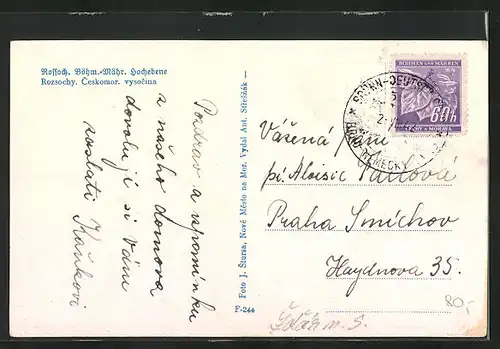 Rossoch. Böhm.-Mähr. Hochebene
Rozsochy. Českomor. vysočina
Pozdrav a vzpomínku
z našeho domova
dovolují si Vám
zaslati Kaňkovi
Foto J. Štursa, Nové Město na Mor. Vydal Ant. Střešňák —
F-244
BÖHMEN UND MÄHREN
60h
ČECHY A MORAVA
Vážená paní
pí. Aloisie
Praha Smíchov
Haydnova 35.
80,-